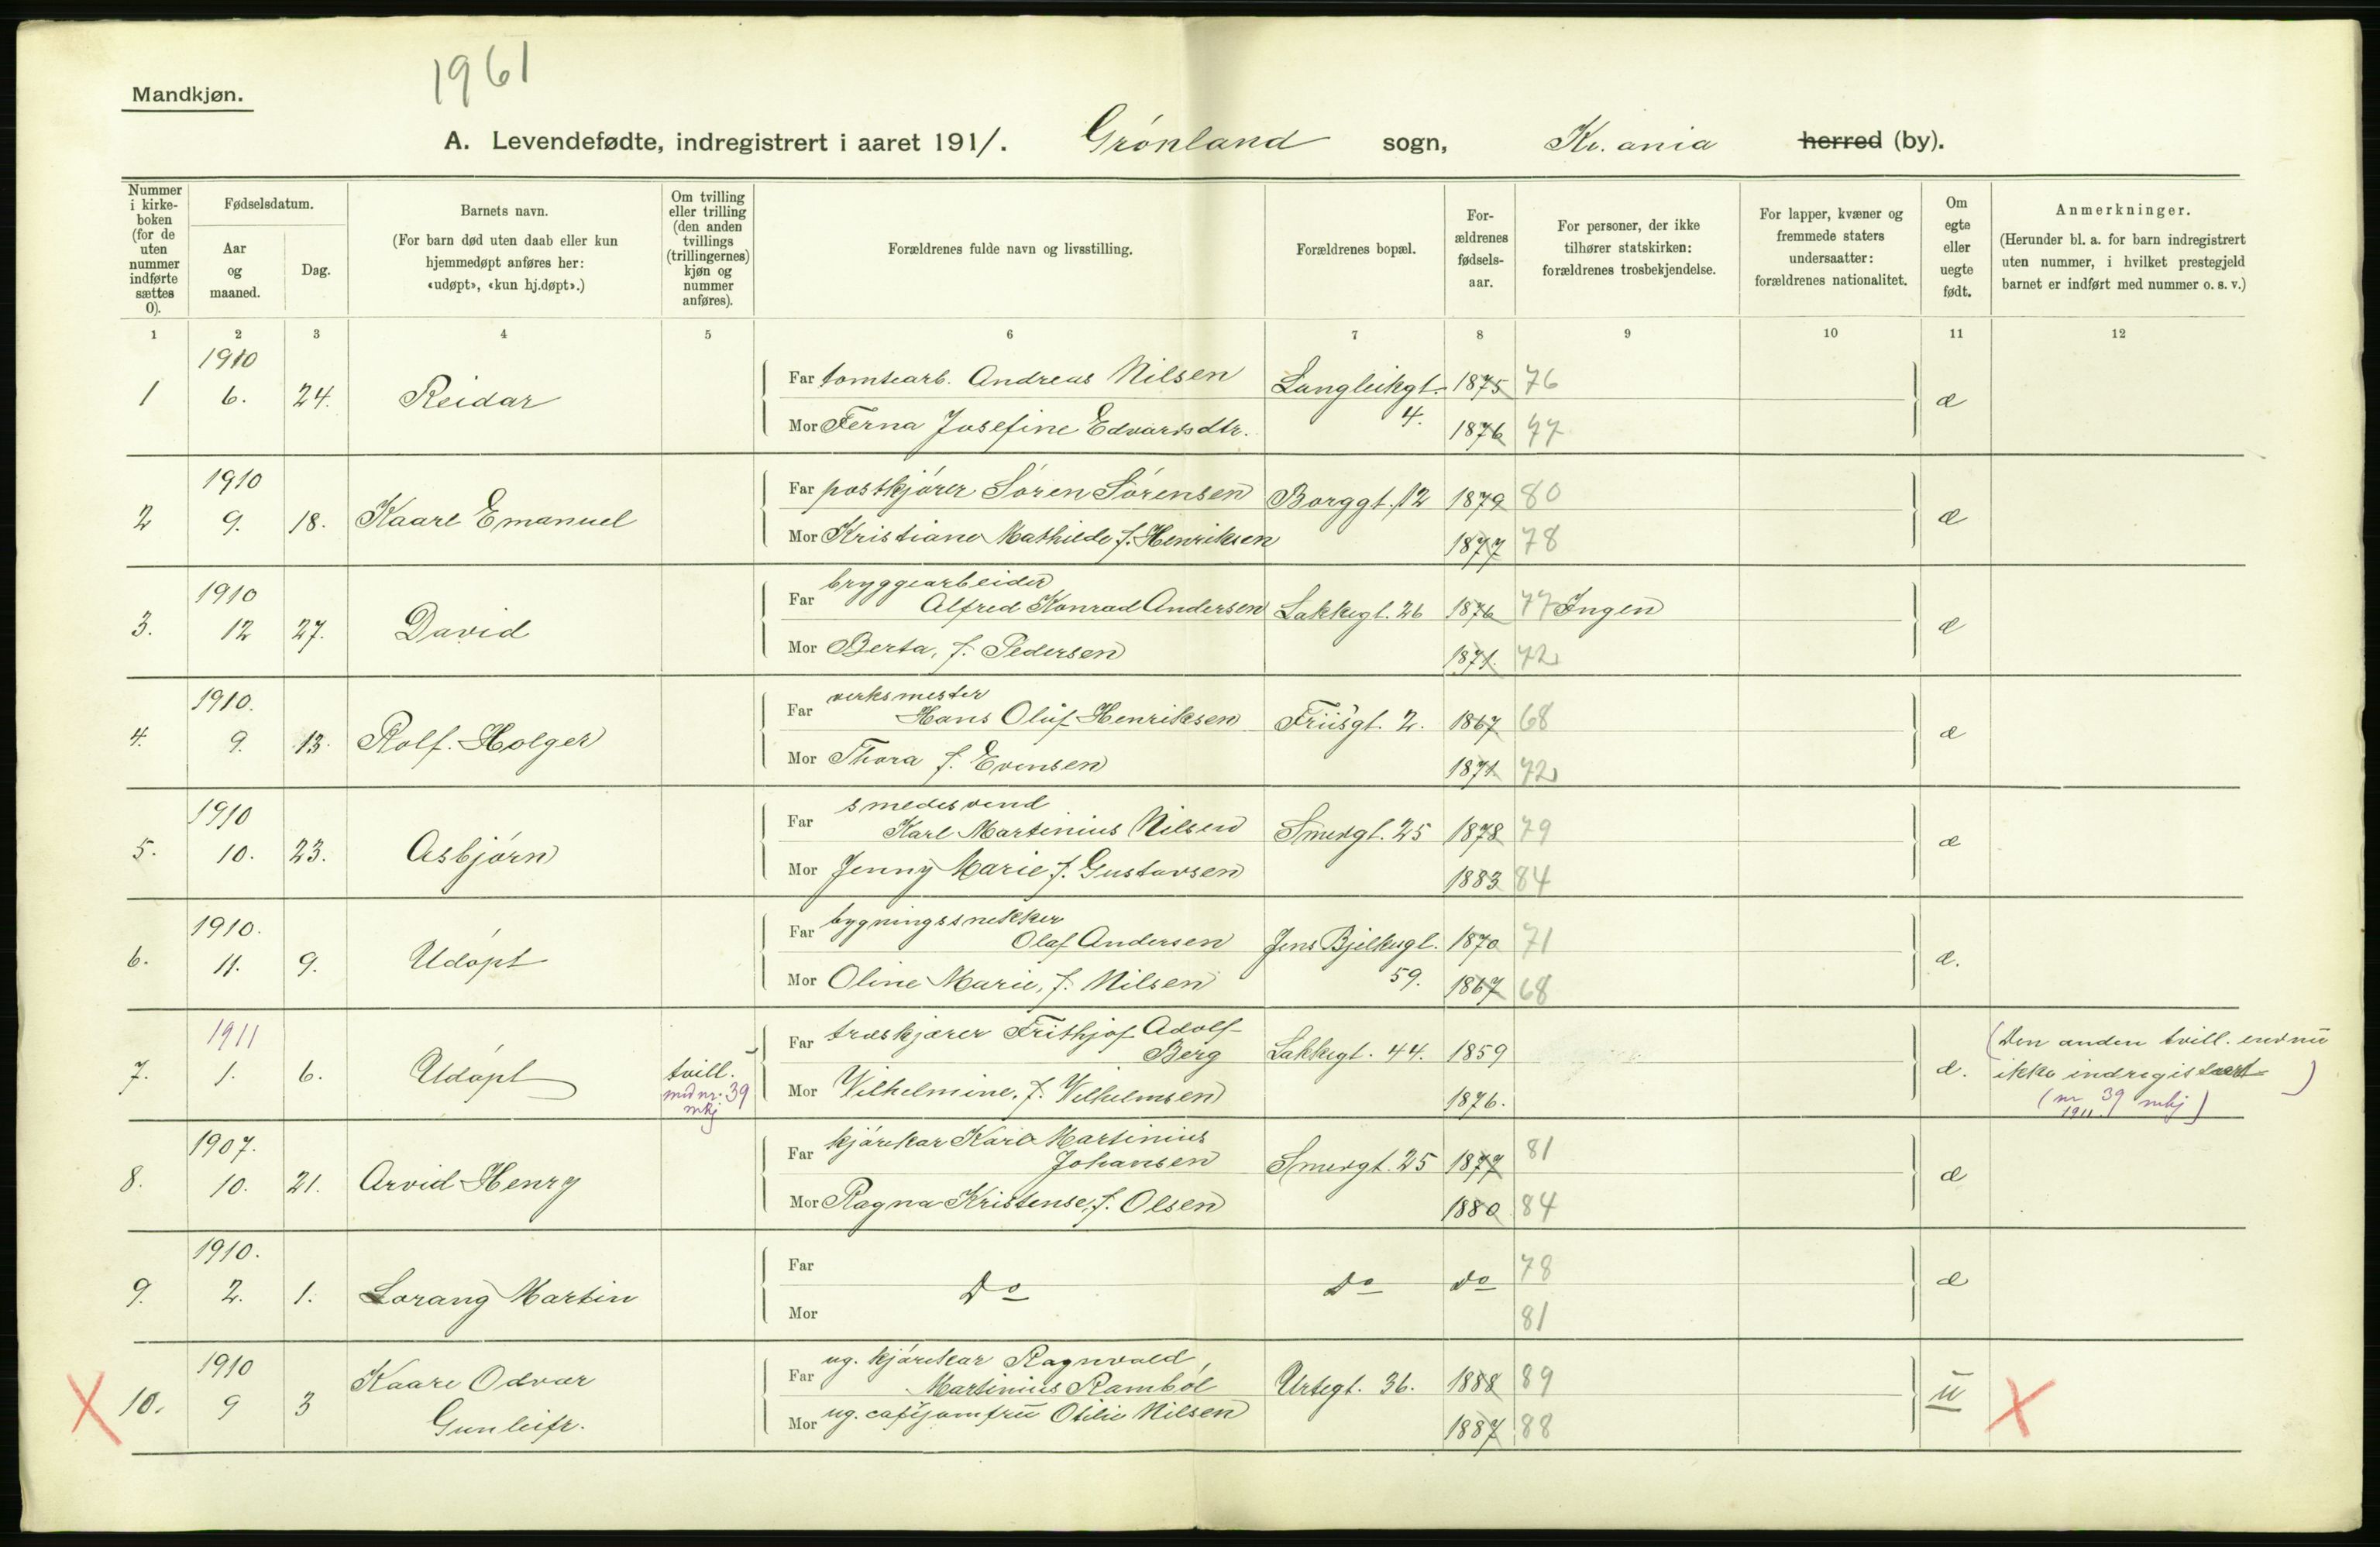 1961
Mandkjøn.
A. Levendefødte, indregistrert i aaret 1911. Grønland sogn, Kr.ania herred (by).
Nummer i kirke-boken (for de uten nummer indførte sættes 0).
Fødselsdatum.
Aar og maaned.
Dag.
Barnets navn.
(For barn død uten daab eller kun hjemmedøpt anføres her: «udøpt», «kun hj.døpt».)
Om tvilling eller trilling (den anden tvillings (trillingernes) kjøn og nummer anføres).
Forældrenes fulde navn og livsstilling.
Forældrenes bopæl.
For-ældrenes fødsels-aar.
For personer, der ikke tilhører statskirken: forældrenes trosbekjendelse.
For lapper, kvæner og fremmede staters undersaatter: forældrenes nationalitet.
Om egte eller uegte født.
Anmerkninger.
(Herunder bl. a. for barn indregistrert uten nummer, i hvilket prestegjeld barnet er indført med nummer o. s. v.)
1 2 3 4 5 6 7 8 9 10 11 12
1910
1 6. 24. Reidar
Far tomtearb. Andreas Nilsen Langleikgt. 4. 1875 76
Mor Ferna Josefine Edvardsdtr. 1876 77
æ
1910
2 9. 18. Kaare Emanuel
Far postkjører Søren Sørensen Borggt. 12 1879 80
Mor Kristiane Mathilde f. Henriksen 1877 78
æ
1910
3. 12 27. David
Far bryggearbeider
Alfred Konrad Andersen Lakkegt. 26 1876 77 Ingen
Mor Berta, f. Pedersen 1871. 72
æ
1910.
4. 9. 13. Rolf. Holger
Far verksmester
Hans Oluf Henriksen Friisgt. 2. 1867 68
Mor Thora f. Evensen 1871 72
æ
1910
5. 10. 23. Asbjørn
Far smedesvend
Karl Martinius Nilsen Smedgt. 25 1878 79
Mor Jenny Marie f. Gustavsen 1883 84
æ
1910.
6. 11. 9. Udøpt
Far bygningssnekker
Olaf Andersen Jens Bjelkegt. 59. 1870 71
Mor Oline Marie, f. Nilsen 1867 68
æ.
1911
7. 1. 6. Udøpt tvill. med nr. 39 mkj
Far træskjærer Frithjof Adolf
Berg Lakkegt. 44. 1859
Mor Vilhelmine, f. Vilhelmsen 1876.
æ. (Den anden tvill. endnu
ikke indregistrert)
(nr 39 mkj)
1911
1907.
8. 10. 21. Arvid Henry
Far kjørekar Karl Martinius
Johansen Smedgt. 25 1877 81
Mor Ragna Kristense, f. Olsen 1880 84
æ
1910.
9. 2. 1. Lorang Martin
Far Do Do do 78
Mor 81
æ
1910
10. 9 3 Kaare Odvar
Gunleifr.
Far ug. kjørekar Ragnvald
Martinius Rambøl Urtegt. 36. 1888 89
Mor ug. caféjomfru Otilie Nilsen 1887 88
u